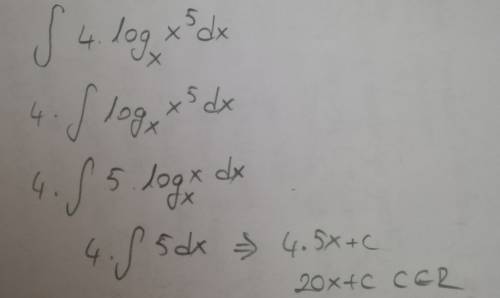 ∫ 4 . log_x x^5 dx
4 . ∫ log_x x^5 dx
4 . ∫ 5 . log_x x dx
4 . ∫ 5 dx ⇒ 4 . 5x + c
20x + c c ∈ R